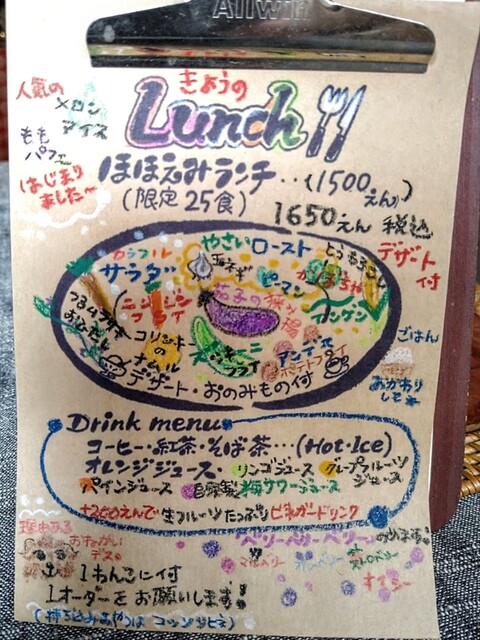 Allwin
きょうの
Lunch
人気の
メロン
アイス
もも
パフェ
はじまり
ました〜
ほほえみランチ‥(1500えん)
(限定25食)
1650えん 税込
デザート
付
やさいロースト
とうもろこし
カラフル
サラダ
玉ネギ
ピーマン
かぼちゃ
ニンジン
フライ
茄子の
インゲン
コリンキー
の
ナムル
ズッキーニ
フライ
デザート・おのみもの付
ごはん
おかわり
Drink menu
コーヒー・紅茶・そば茶‥(Hot・Ice)
オレンジジュース・リンゴジュース・グレープフルーツ
ジュース
パインジュース・自家製梅サワージュース
+200えんで生フルーツたっぷりビネガードリンク
ベリーベリーベリー
マルベリー
ブルーベリー
ストロベリー
おねがい
デス。
1わんこに付
1オーダーをお願いします!